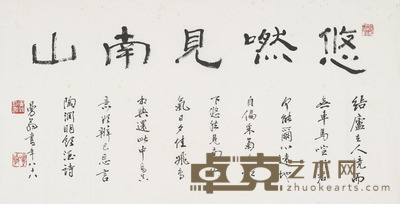 悠然見南山
結廬在人境而
無車馬喧問君
何能爾心遠地
自偏采菊東
下悠然見南山
氣日夕佳飛鳥
相與還此中有真
意欲辨已忘言
陶淵明飲酒詩
曼翁書年八十八
卓克艺术网
zhuokearts.com